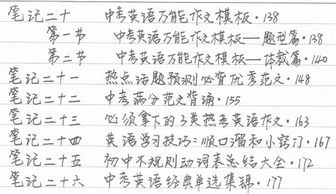 笔记二十 中考英语万能作文模板·138
第一节 中考英语万能作文模板—题型篇·138
第二节 中考英语万能作文模板—体裁篇·140
笔记二十一 热点话题预测必背优秀范文·148
笔记二十二 中考高分范文背诵·155
笔记二十三 必须拿下的3类热考英语作文·163
笔记二十四 英语学习技巧:顺口溜和小窍门·167
笔记二十五 初中不规则动词表总结大全·172
笔记二十六 中考英语经典单选集锦·177